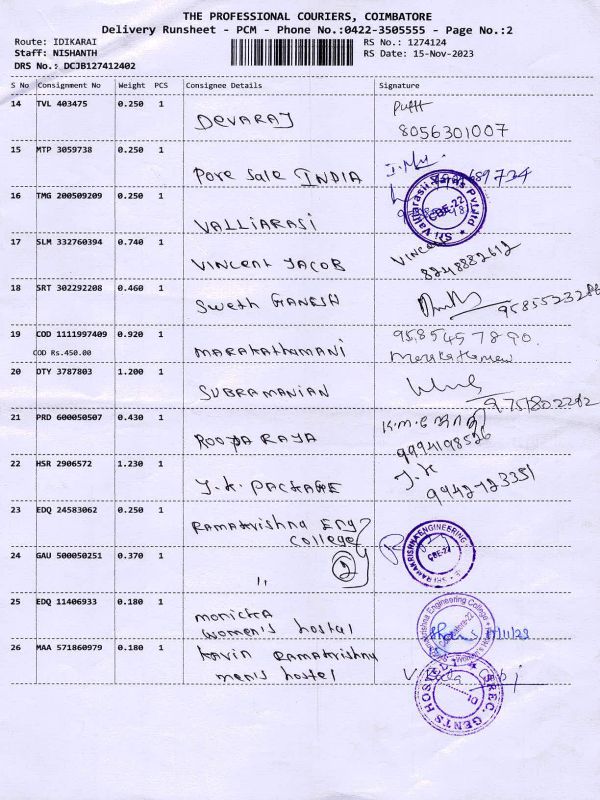 THE PROFESSIONAL COURIERS, COIMBATORE
Delivery Runsheet - PCM - Phone No.:0422-3505555 - Page No.:2
Route: IDIKARAI RS No.: 1274124
Staff: NISHANTH RS Date: 15-Nov-2023
DRS No.: DCJB127412402
S No Consignment No Weight PCS Consignee Details Signature
14 TVL 403475 0.250 1
DEVARAJ 8056301007
15 MTP 3059738 0.250 1
Pore Sale INDIA
16 TMG 200509209 0.250 1
VALLIARASI
17 SLM 332760394 0.740 1
VINCENT JACOB Vincent 8248882612
18 SRT 302292208 0.460 1
Sweth GANESH 9585523286
19 COD 1111997409 0.920 1 9585457890.
COD Rs.450.00 MARAKATHAMANI
20 OTY 3787803 1.200 1
SUBRAMANIAN 9751802292
21 PRD 600050507 0.430 1 K.m.
ROOPA RAJA 9994198526
22 HSR 2906572 1.230 1 J.K
J.K. PACKAGE 9942723351
23 EDQ 24583062 0.250 1
RAMAKrishna Eng
College
24 GAU 500050251 0.370 1
" 2
SRI RAMAKRISHNA ENGINEERING
CBE-22
25 EDQ 11406933 0.180 1
monicka
women's hostel
Engineering College
26 MAA 571860979 0.180 1
Kavin Ramakrishna
men's hostel
SREC. GENTS HOSTEL